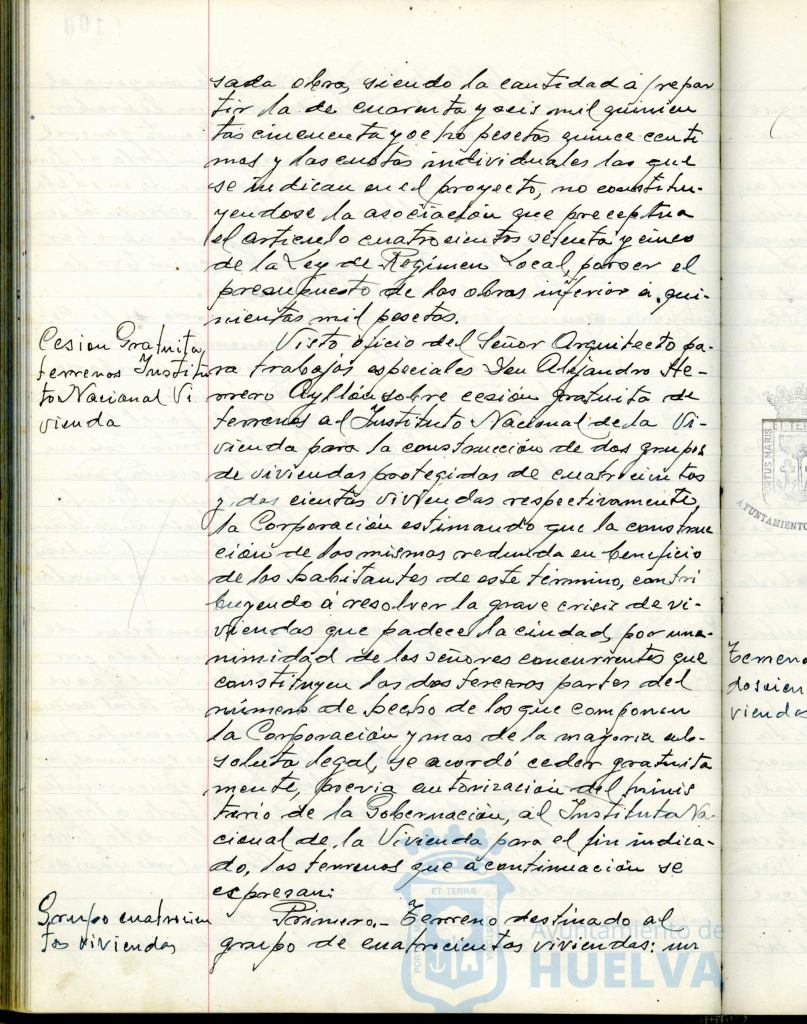 sada obra, siendo la cantidad a repar
tir la de cuarenta y seis mil quinien
tas cincuenta y ocho pesetas quince centi
mos y las cuotas individuales las que
se indican en el proyecto, no constitu-
yendose la asociación que preceptua
el articulo cuatrocientos setenta y cinco
de la Ley de Regimen Local, por ser el
presupuesto de las obras inferior a qui-
nientas mil pesetas.
Cesion Gratuita
terrenos Institu
to Nacional Vi
vienda
Visto oficio del Señor Arquitecto pa-
ra trabajos especiales Don Alejandro He-
rrero Ayllón sobre cesión gratuita de
terrenos al Instituto Nacional de la Vi-
vienda para la construcción de dos grupos
de viviendas protegidas de cuatrocientas
y dos cientas viviendas respectivamente,
la Corporación estimando que la construc
ción de las mismas redunda en beneficio
de los habitantes de este término, contri
buyendo á resolver la grave crisis de vi-
viendas que padece la ciudad, por una-
nimidad de los señores concurrentes que
constituyen las dos terceras partes del
número de hecho de los que componen
la Corporación y mas de la mayoria ab-
soluta legal, se acordó ceder gratuita
mente, previa autorización del Minis
terio de la Gobernación, al Instituto Na-
cional de la Vivienda para el fin indica-
do, los terrenos que a continuación se
expresan:
Grupo cuatrocien
tas viviendas
Primero.- Terreno destinado al
grupo de cuatrocientas viviendas: un
Terreno
doscien
viendas
PORTUS MARIS
ET TERRÆ
AYUNTAMIENTO
ET TERRÆ
Ayuntamiento de
HUELVA